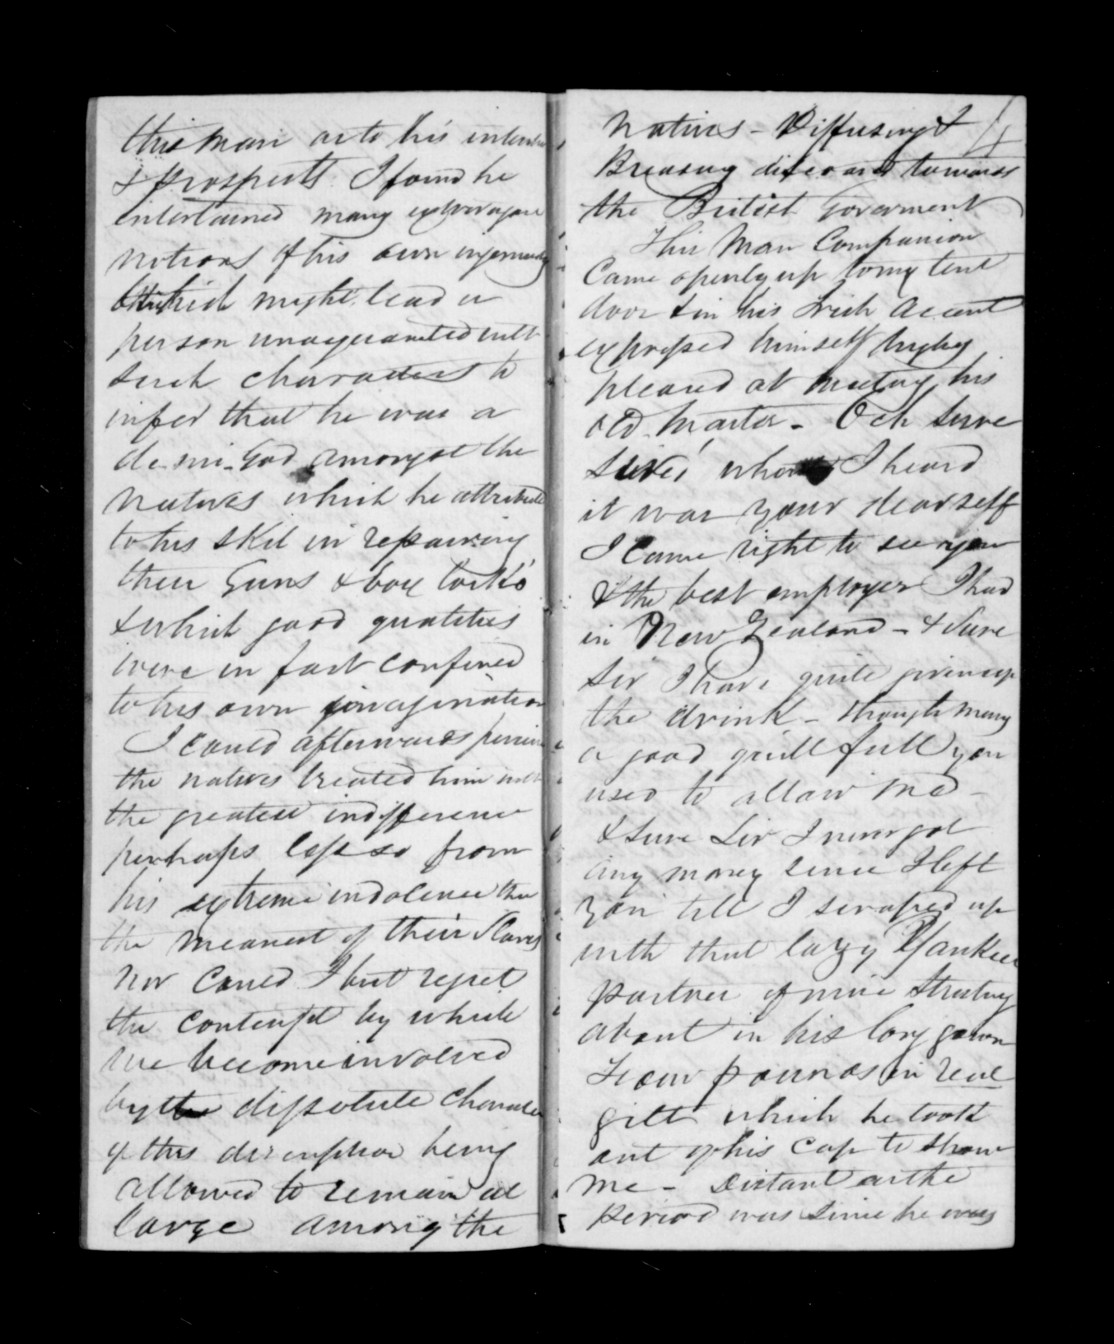 this man as to his intention
& prospects. I found he
entertained many extravagan
notions of his own ingenuity
which might lead a
person unaquainted with
such characters to
infer that he was a
demi-God amongst the
natives which he attributed
to his skil in repairing
their Guns & box locks
& which good qualities
were in fact confined
to his own imagination
I could afterwards perceive
the natives treated him with
the greatest indifference
perhaps less so from
his extreme indolence than
the meanest of their Slaves
nor could I but regret
the contempt by which
we become involved
by the dissolute character
of this discription being
allowed to remain at
large among the
Natives - Diffusing &
Breasing discord towards
the British Goverment
This Man Companion
Came openly up to my tent
door & in his Irish accent
expressed himself highly
pleased at meeting his
old Master - Och sure
when I heard
it was your dear self
I came right to see you
& the best employer I had
in New Zealand - & Sure
Sir I have quite given up
the drink - though many
a good quill full you
used to allow me -
& Sure Sir I never got
any money since I left
you till I scraped up
with that lazy Yankee
partner of mine Struting
about in his long gown
Four pounds in real
gilt which he took
out of his Cap to show
me - Distant as the
period was since he was